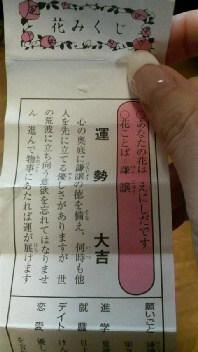 花みくじ
あなたの花は えにしだです
○花ことば 謙譲
運勢 大吉
心の奥底に謙譲の徳を備え、何時も他
人を先に立てる優しさがありますが 世
の荒波に立ち向う意欲を忘れてはなりませ
ん 進んで物事にあたれば運が展けます
願いごと
進学
就職
デイト
恋愛